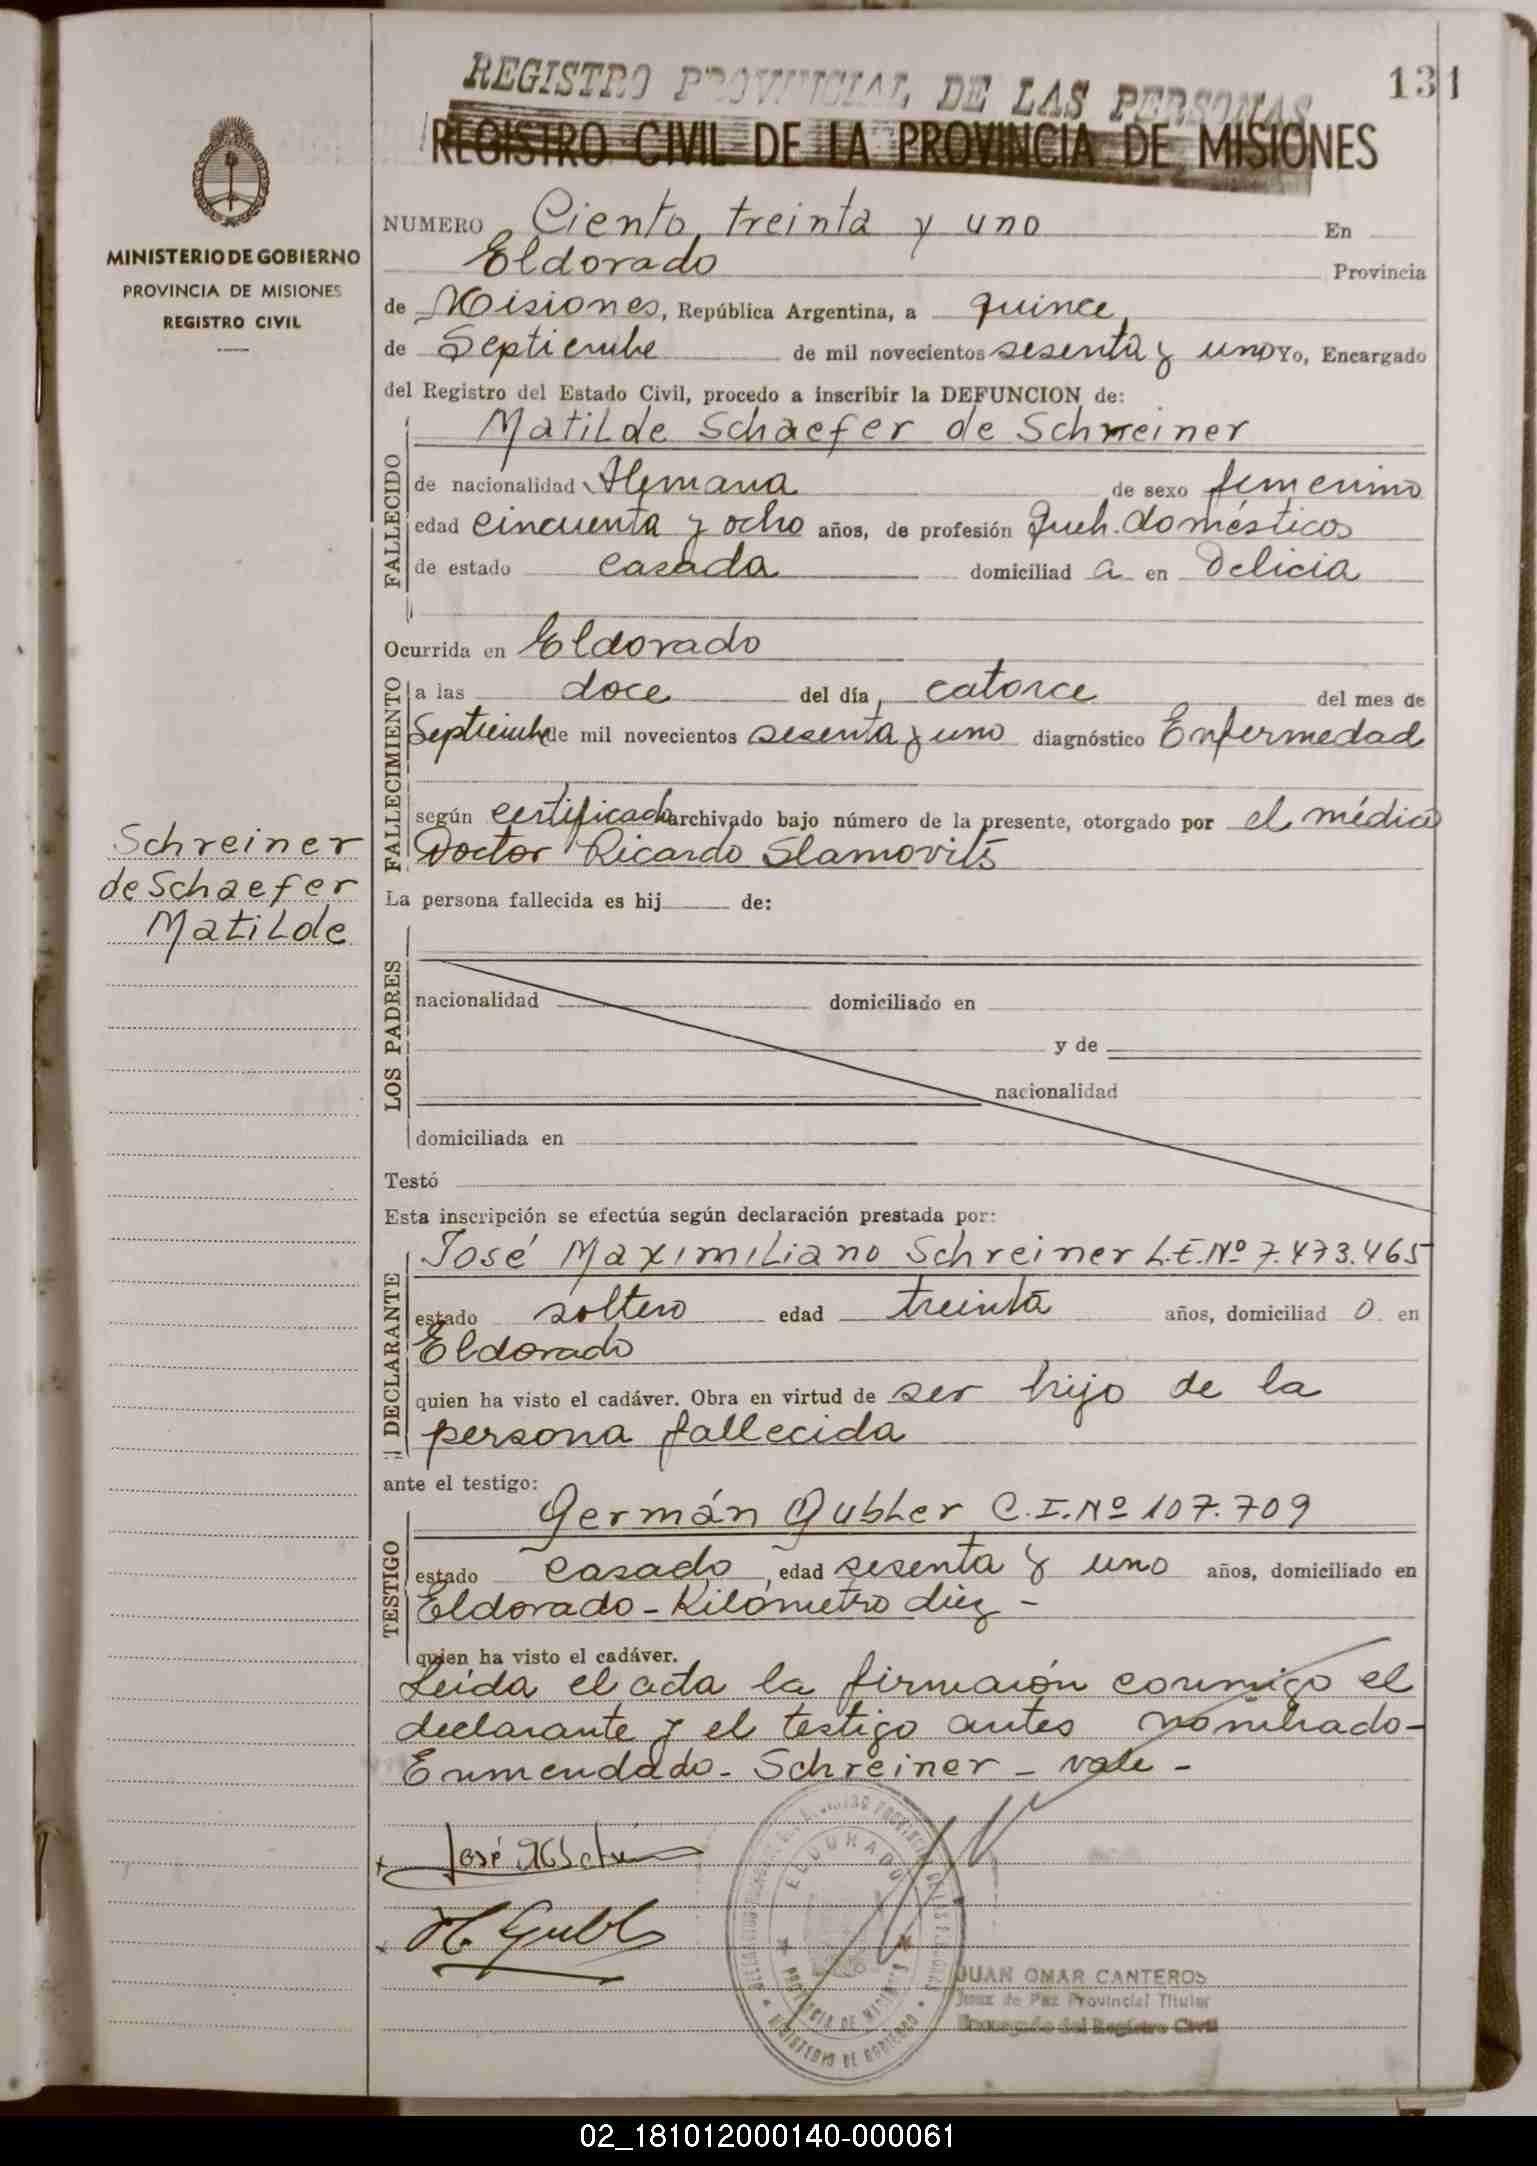 REGISTRO PROVINCIAL DE LAS PERSONAS
131
REGISTRO CIVIL DE LA PROVINCIA DE MISIONES
MINISTERIO DE GOBIERNO
PROVINCIA DE MISIONES
REGISTRO CIVIL
NUMERO Ciento treinta y uno En
Eldorado Provincia
de Misiones, República Argentina, a quince
de Septiembre de mil novecientos sesenta y uno Yo, Encargado
del Registro del Estado Civil, procedo a inscribir la DEFUNCION de:
FALLECIDO
Matilde Schaefer de Schreiner
de nacionalidad Alemana de sexo femenino
edad cincuenta y ocho años, de profesión Queh. domésticos
de estado casada domiciliad a en Delicia
Ocurrida en Eldorado
FALLECIMIENTO
a las doce del día catorce del mes de
Septiembre de mil novecientos sesenta y uno diagnóstico Enfermedad
según certificado archivado bajo número de la presente, otorgado por el médico
Doctor Ricardo Slamovits
Schreiner
de Schaefer
Matilde
La persona fallecida es hij de:
LOS PADRES
nacionalidad domiciliado en
y de
nacionalidad
domiciliada en
Testó
Esta inscripción se efectúa según declaración prestada por:
DECLARANTE
José Maximiliano Schreiner L.E.Nº 7.473.465
estado soltero edad treinta años, domiciliad o en
Eldorado
quien ha visto el cadáver. Obra en virtud de ser hijo de la
persona fallecida
ante el testigo:
TESTIGO
Germán Gubler C.I.Nº 107.709
estado casado, edad sesenta y uno años, domiciliado en
Eldorado - Kilómetro diez -
quien ha visto el cadáver.
Leida el acta la firmaron conmigo el
declarante y el testigo antes nombrado-
Enmendado - Schreiner - vale -
José M Schrei
H. Gubler
ELDORADO
PROVINCIA DE MISIONES
MINISTERIO DE GOBIERNO
JUAN OMAR CANTEROS
Juez de Paz Provincial Titular
Encargado del Registro Civil
02_181012000140-000061